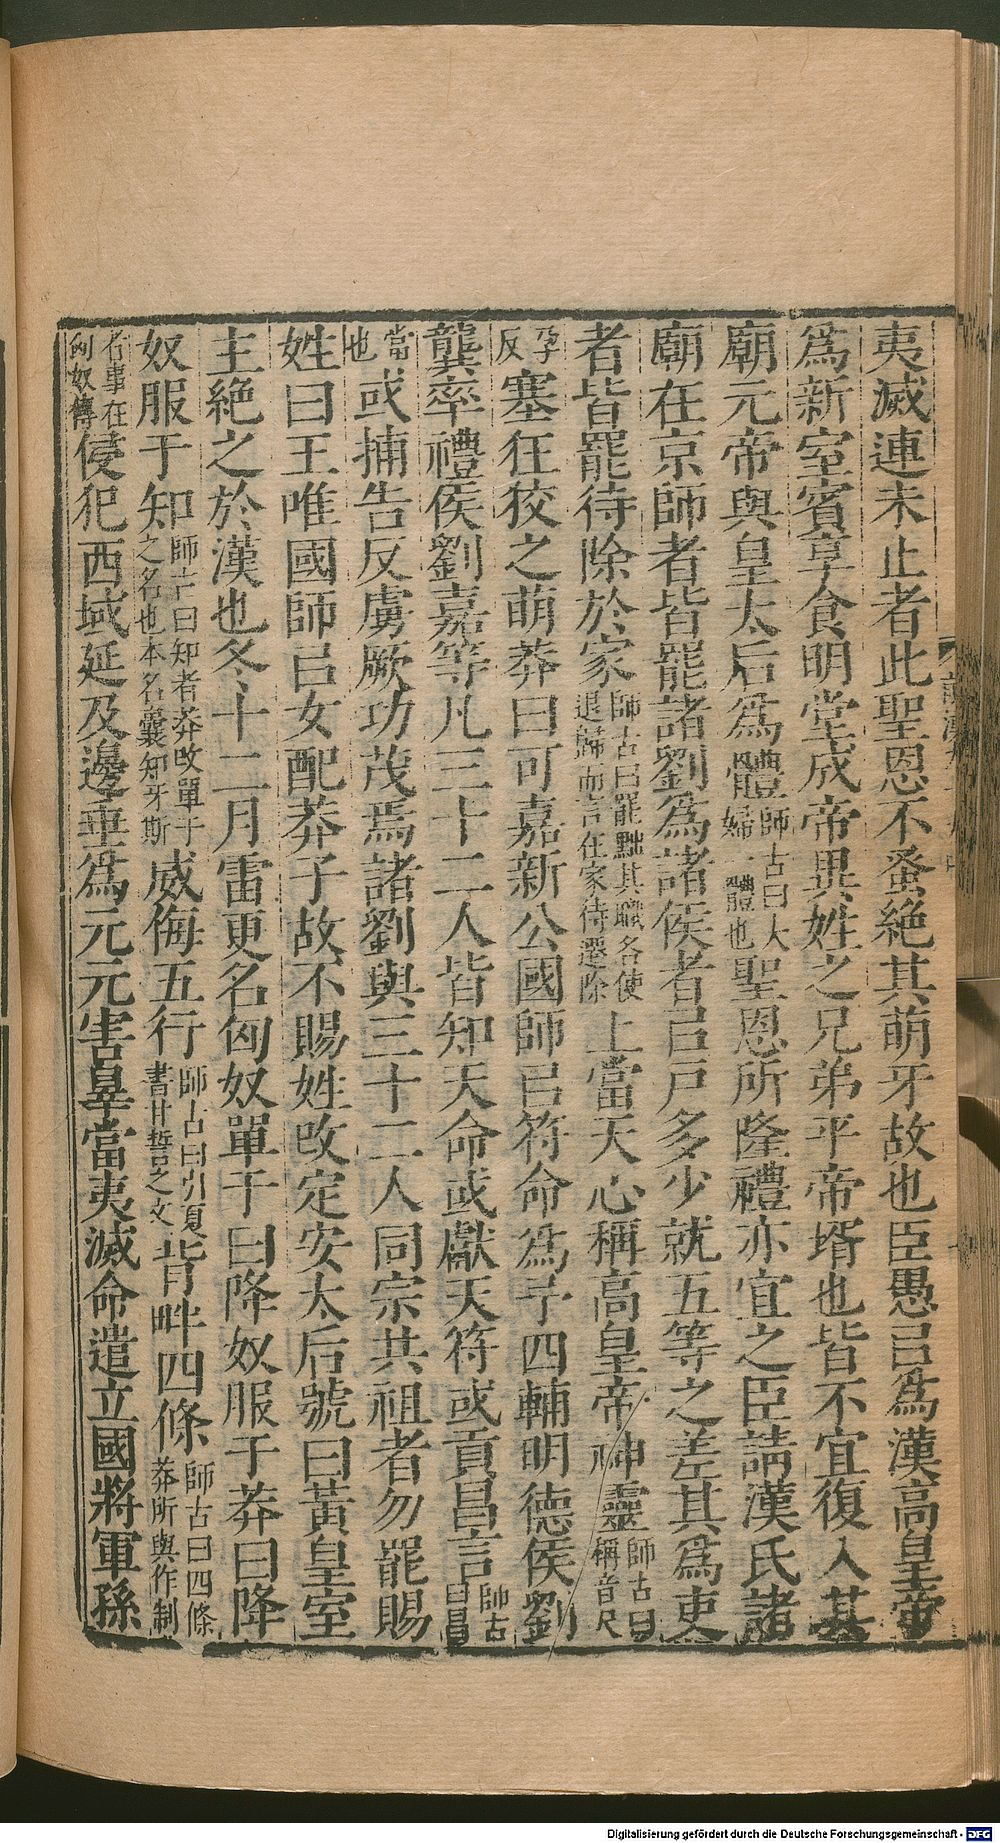 夷滅連未止者此聖恩不蚤絶其萌牙故也臣愚㠯爲漢高皇帝
爲新室賓享食明堂成帝異姓之兄弟平帝壻也皆不宜復入其
廟元帝與皇太后爲體師古曰夫婦一體也聖恩所隆禮亦宜之臣請漢氏諸
廟在京師者皆罷諸劉爲諸侯者㠯戸多少就五等之差其爲吏
者皆罷待除於家師古曰罷黜其職名使退歸而言在家待遷除上當天心稱高皇帝神靈師古曰稱音尺
孕反塞狂狡之萌莽曰可嘉新公國師㠯符命爲予四輔明德侯劉
龔率禮侯劉嘉等凡三十二人皆知天命或獻天符或貢昌言師古曰昌
當也或捕告反虜厥功茂焉諸劉與三十二人同宗共祖者勿罷賜
姓曰王唯國師㠯女配莽子故不賜姓改定安太后號曰黃皇室
主絶之於漢也冬十二月雷更名匈奴單于曰降奴服于莽曰降
奴服于知師古曰知者莽改單于之名也本名囊知牙斯威侮五行師古曰引夏書甘誓之文背畔四條師古曰四條莽所與作制
者事在匈奴傳侵犯西域延及邊垂爲元元害辠當夷滅命遣立國將軍孫
Digitalisierung gefördert durch die Deutsche Forschungsgemeinschaft - DFG